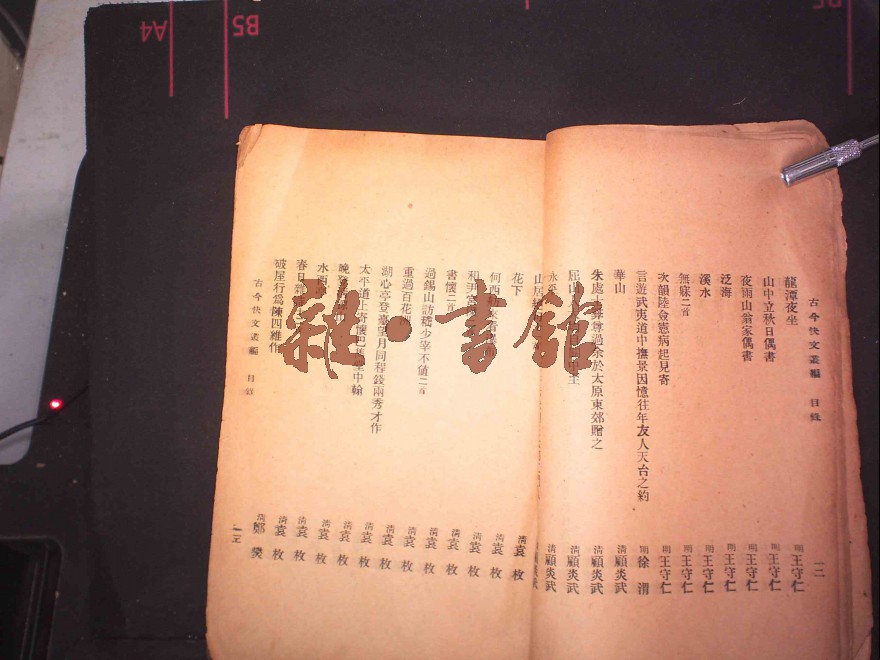 A4
B5
B5
雜·書館
古今快文叢編 目錄
一二
龍潭夜坐 明王守仁
山中立秋日偶書 明王守仁
夜雨山翁家偶書 明王守仁
泛海 明王守仁
溪水 明王守仁
無寐二首 明王守仁
次韻陸僉憲病起見寄 明王守仁
言遊武夷道中撫景因憶往年友人天台之約 明徐渭
華山 清顧炎武
朱處士 過余於太原東郊贈之 清顧炎武
屈山 清顧炎武
永平 清顧炎武
山居 清顧炎武
花下 清袁枚
何西 來 清袁枚
和尹宮 清袁枚
書懷二首 清袁枚
過錫山訪嵇少宰不值二首 清袁枚
重過百花 清袁枚
湖心亭登臺望月同程錢兩秀才作 清袁枚
太平道上寄懷巴 堂中翰 清袁枚
晚登 清袁枚
水西 清袁枚
春日雜 清袁枚
破屋行爲陳四維作 清鄭燮
古今快文叢編 目錄
一三